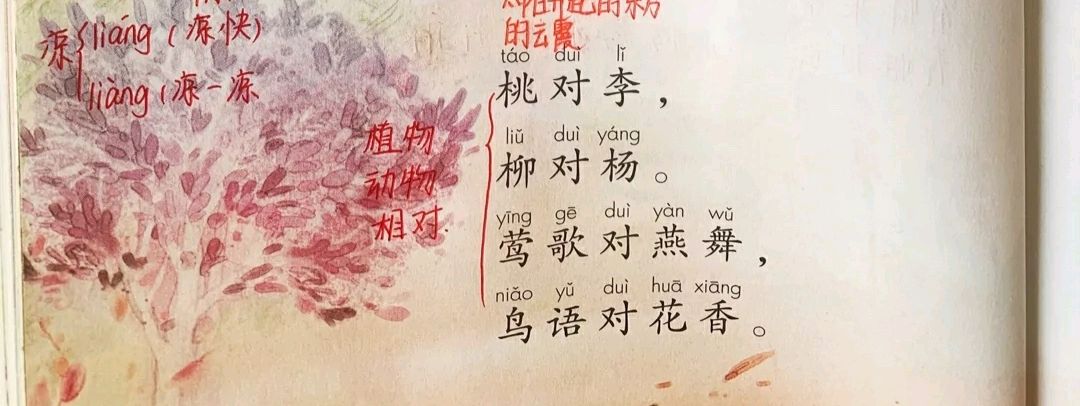 凉
liáng（凉快）
liàng（凉一凉
的云霞
táo duì lǐ
桃对李，
liǔ duì yáng
柳对杨。
植物
动物
相对.
yīng gē duì yàn wǔ
莺歌对燕舞，
niǎo yǔ duì huā xiāng
鸟语对花香。